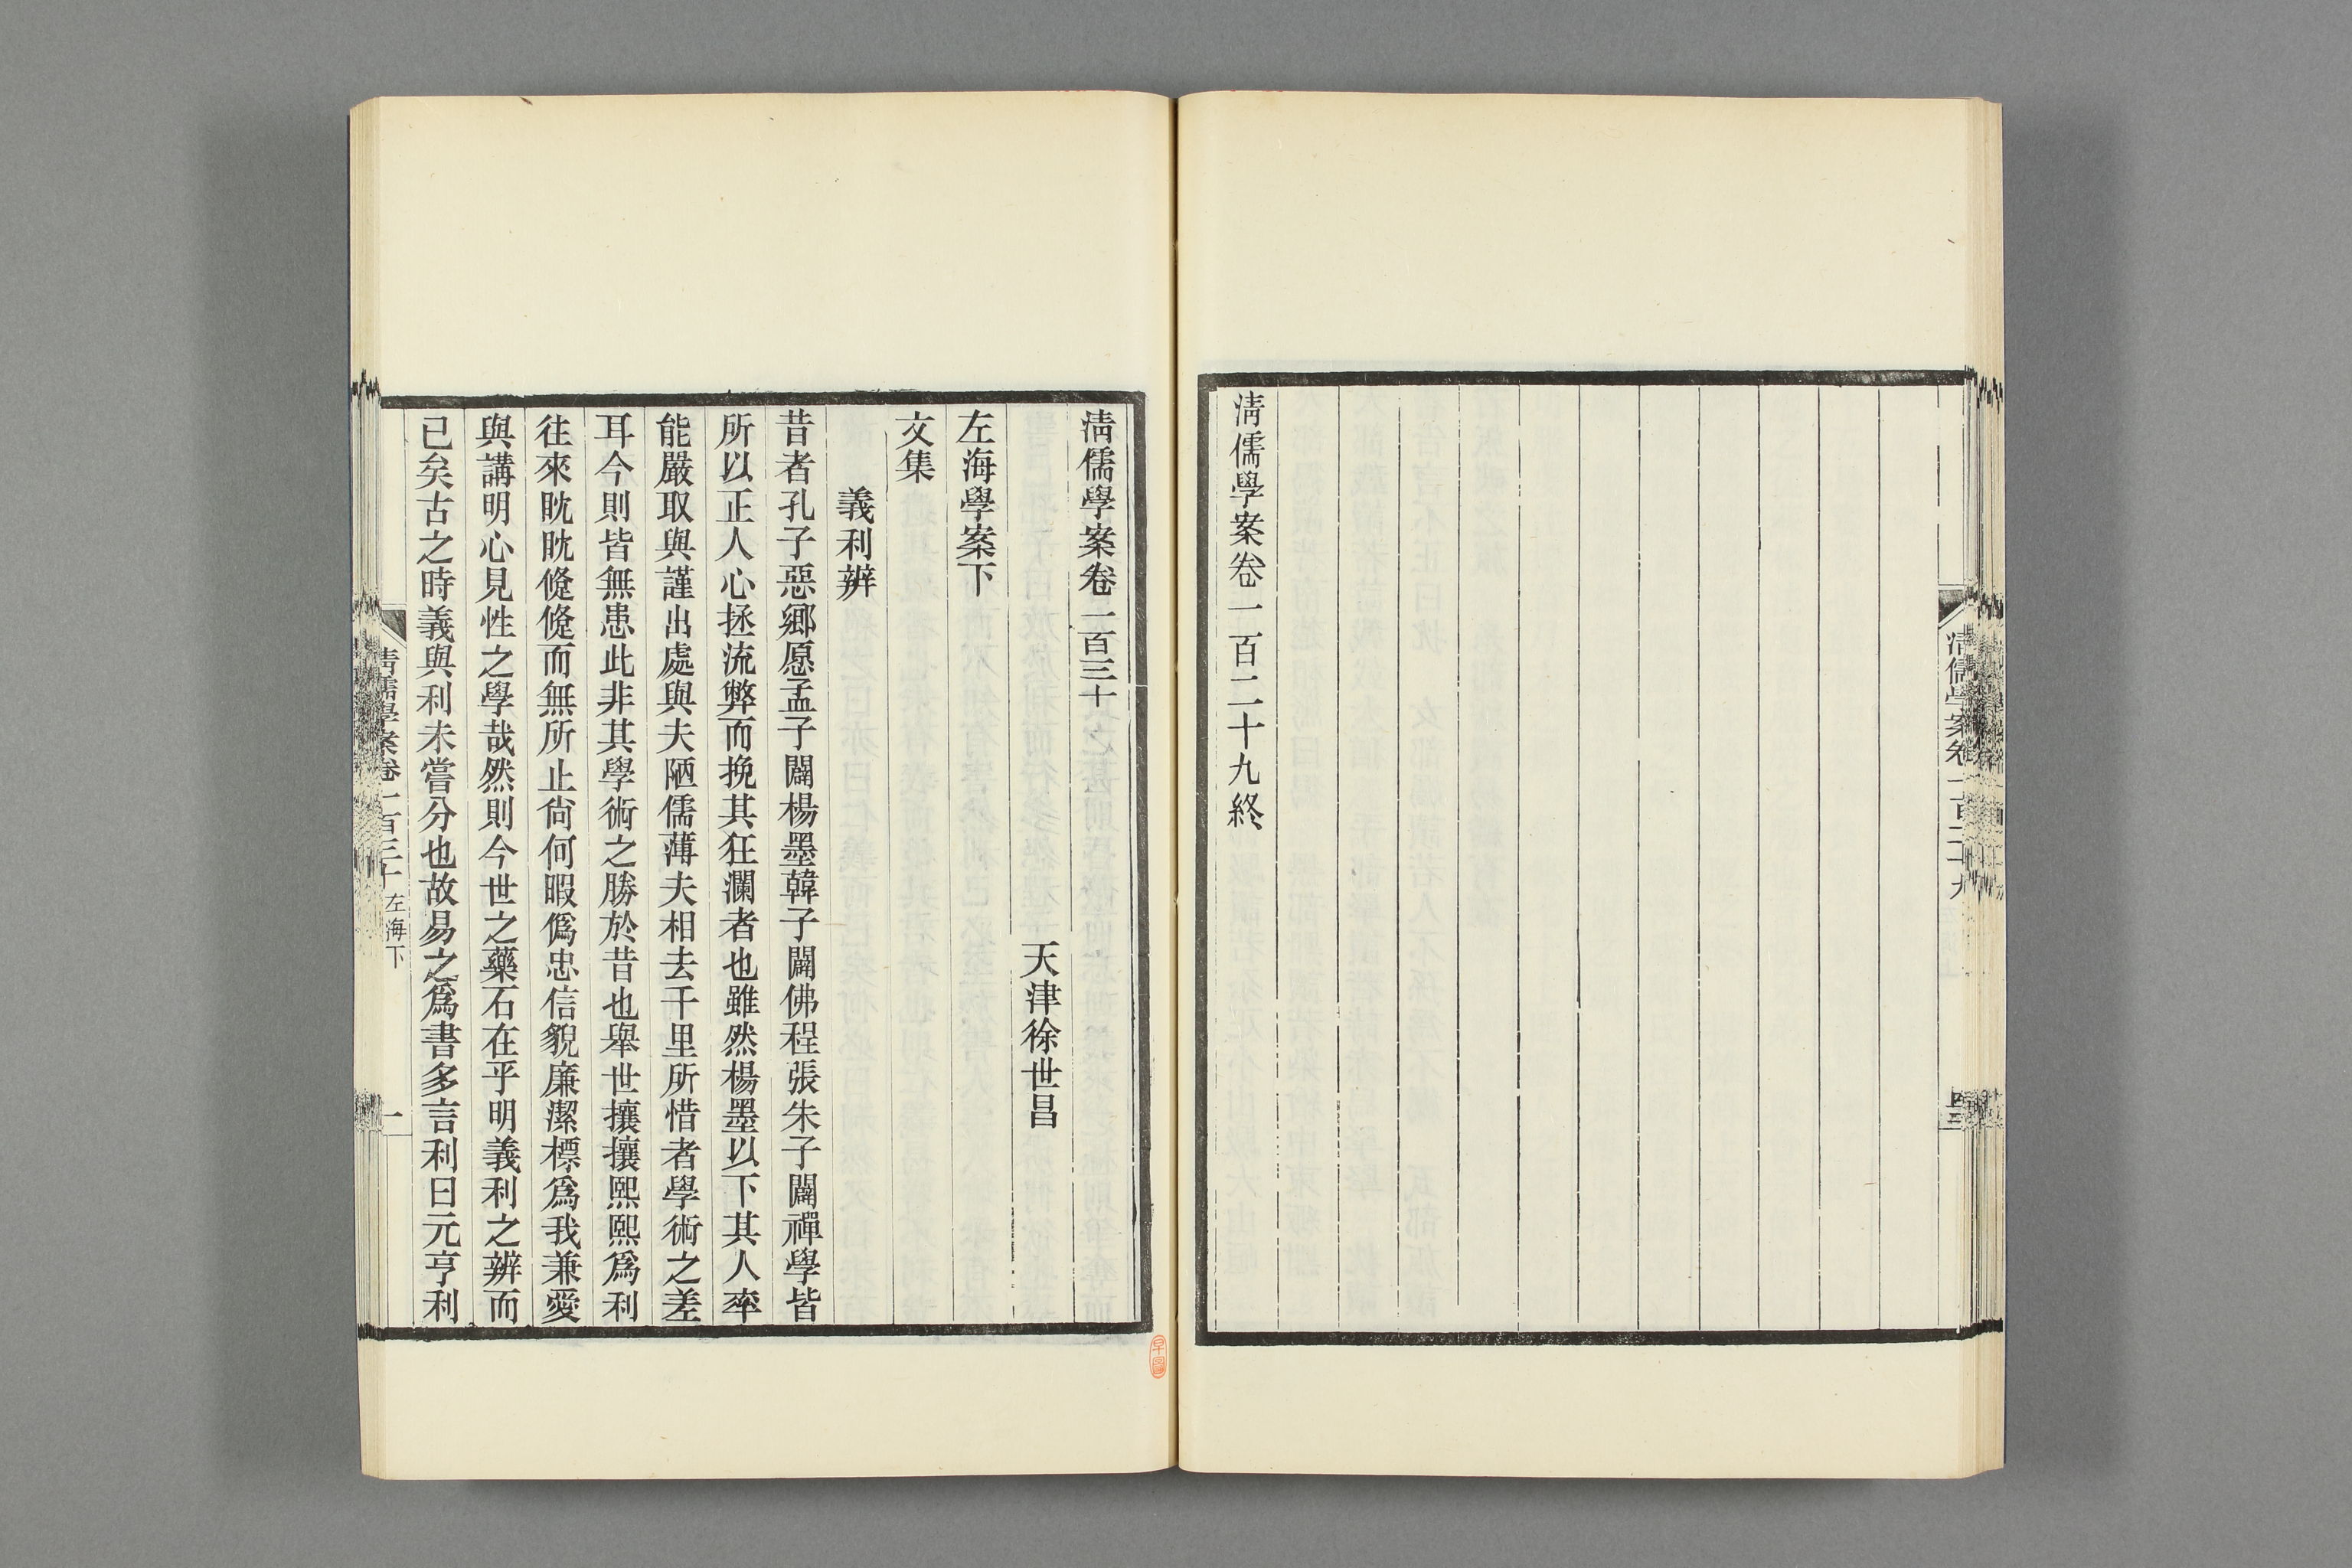 清儒學案卷一百二十九終
清儒學案卷一百三十
天津徐世昌
左海學案下
文集
義利辨
昔者孔子惡鄉愿孟子闢楊墨韓子闢佛程張朱子闢禪學皆
所以正人心拯流弊而挽其狂瀾者也雖然楊墨以下其人率
能嚴取與謹出處與夫陋儒薄夫相去千里所惜者學術之差
耳今則皆無患此非其學術之勝於昔也舉世攘攘熙熙爲利
往來眈眈傻傻而無所止尙何暇僞忠信貌廉潔標爲我兼愛
與講明心見性之學哉然則今世之藥石在乎明義利之辨而
已矣古之時義與利未嘗分也故易之爲書多言利曰元亨利
清儒學案卷一百三十
左海下
一